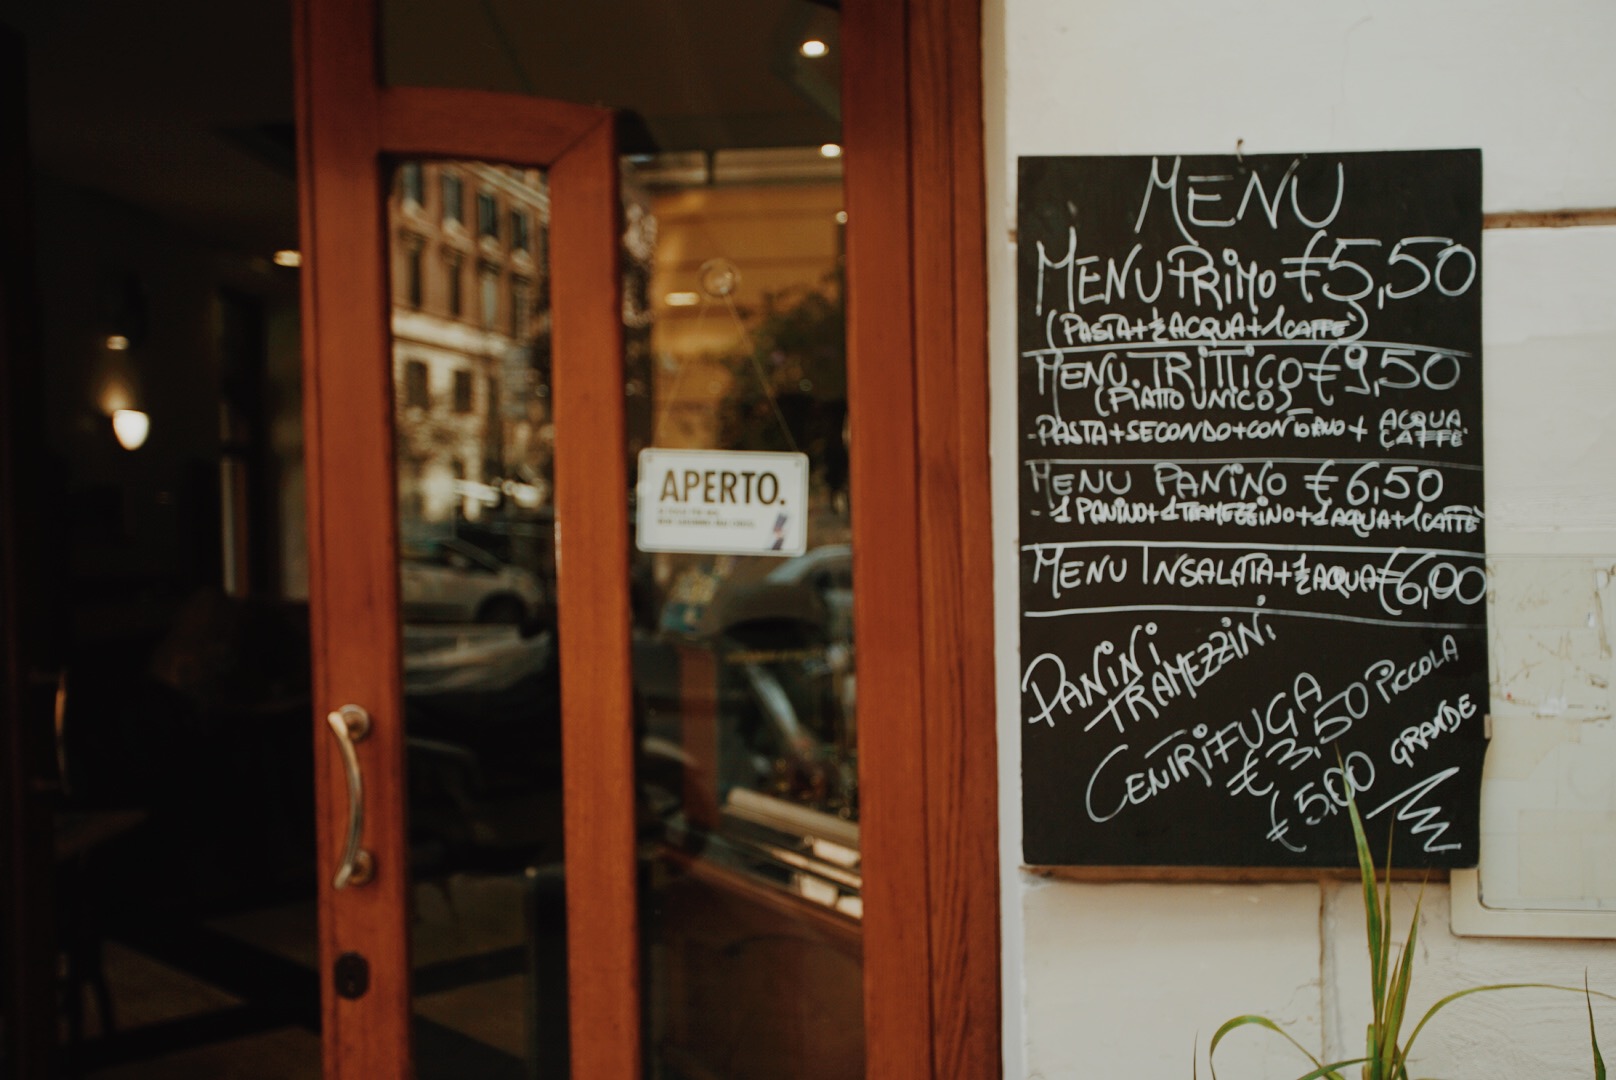 APERTO.
MENU
MENU PRIMO €5,50
(PASTA+½ACQUA+1CAFFE')
MENU.TRITTICO €9,50
(PIATTO UNICO)
-PASTA+SECONDO+CONTORNO+ ACQUA
CAFFE'
MENU PANINO €6,50
- 1 PANINO+1TRAMEZZINO+1AQUA+1CAFFE'
MENU INSALATA+½AQUA €6,00
PANINI
TRAMEZZINI
CENTRIFUGA
€3,50 PICCOLA
€5,00 GRANDE